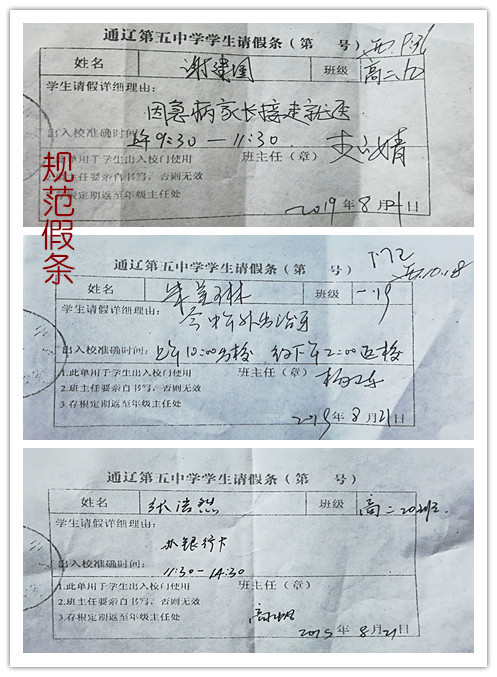 规范假条
通辽第五中学学生请假条（第 号）
姓名 谢建
班级 高二
学生请假详细理由：
因急病家长接走就医
出入校准确时间：
上午9:30—11:30
1.此单用于学生出入校门使用 班主任（章）
2.班主任要亲自书写，否则无效
3.存根定期返至年级主任处
2019年8月21日
通辽第五中学学生请假条（第 号）
10.18
姓名 朱 琳
班级 一.19
学生请假详细理由：
今中午外出治牙
出入校准确时间：上午10:00出校 约下午2:00返校
1.此单用于学生出入校门使用 班主任（章）
2.班主任要亲自书写，否则无效
3.存根定期返至年级主任处
2019年8月21日
通辽第五中学学生请假条（第 号）
姓名 张浩然
班级 高二20
学生请假详细理由：
办银行卡
出入校准确时间：
11:30-14:30
1.此单用于学生出入校门使用 班主任（章）
2.班主任要亲自书写，否则无效
3.存根定期返至年级主任处
2019年8月21日